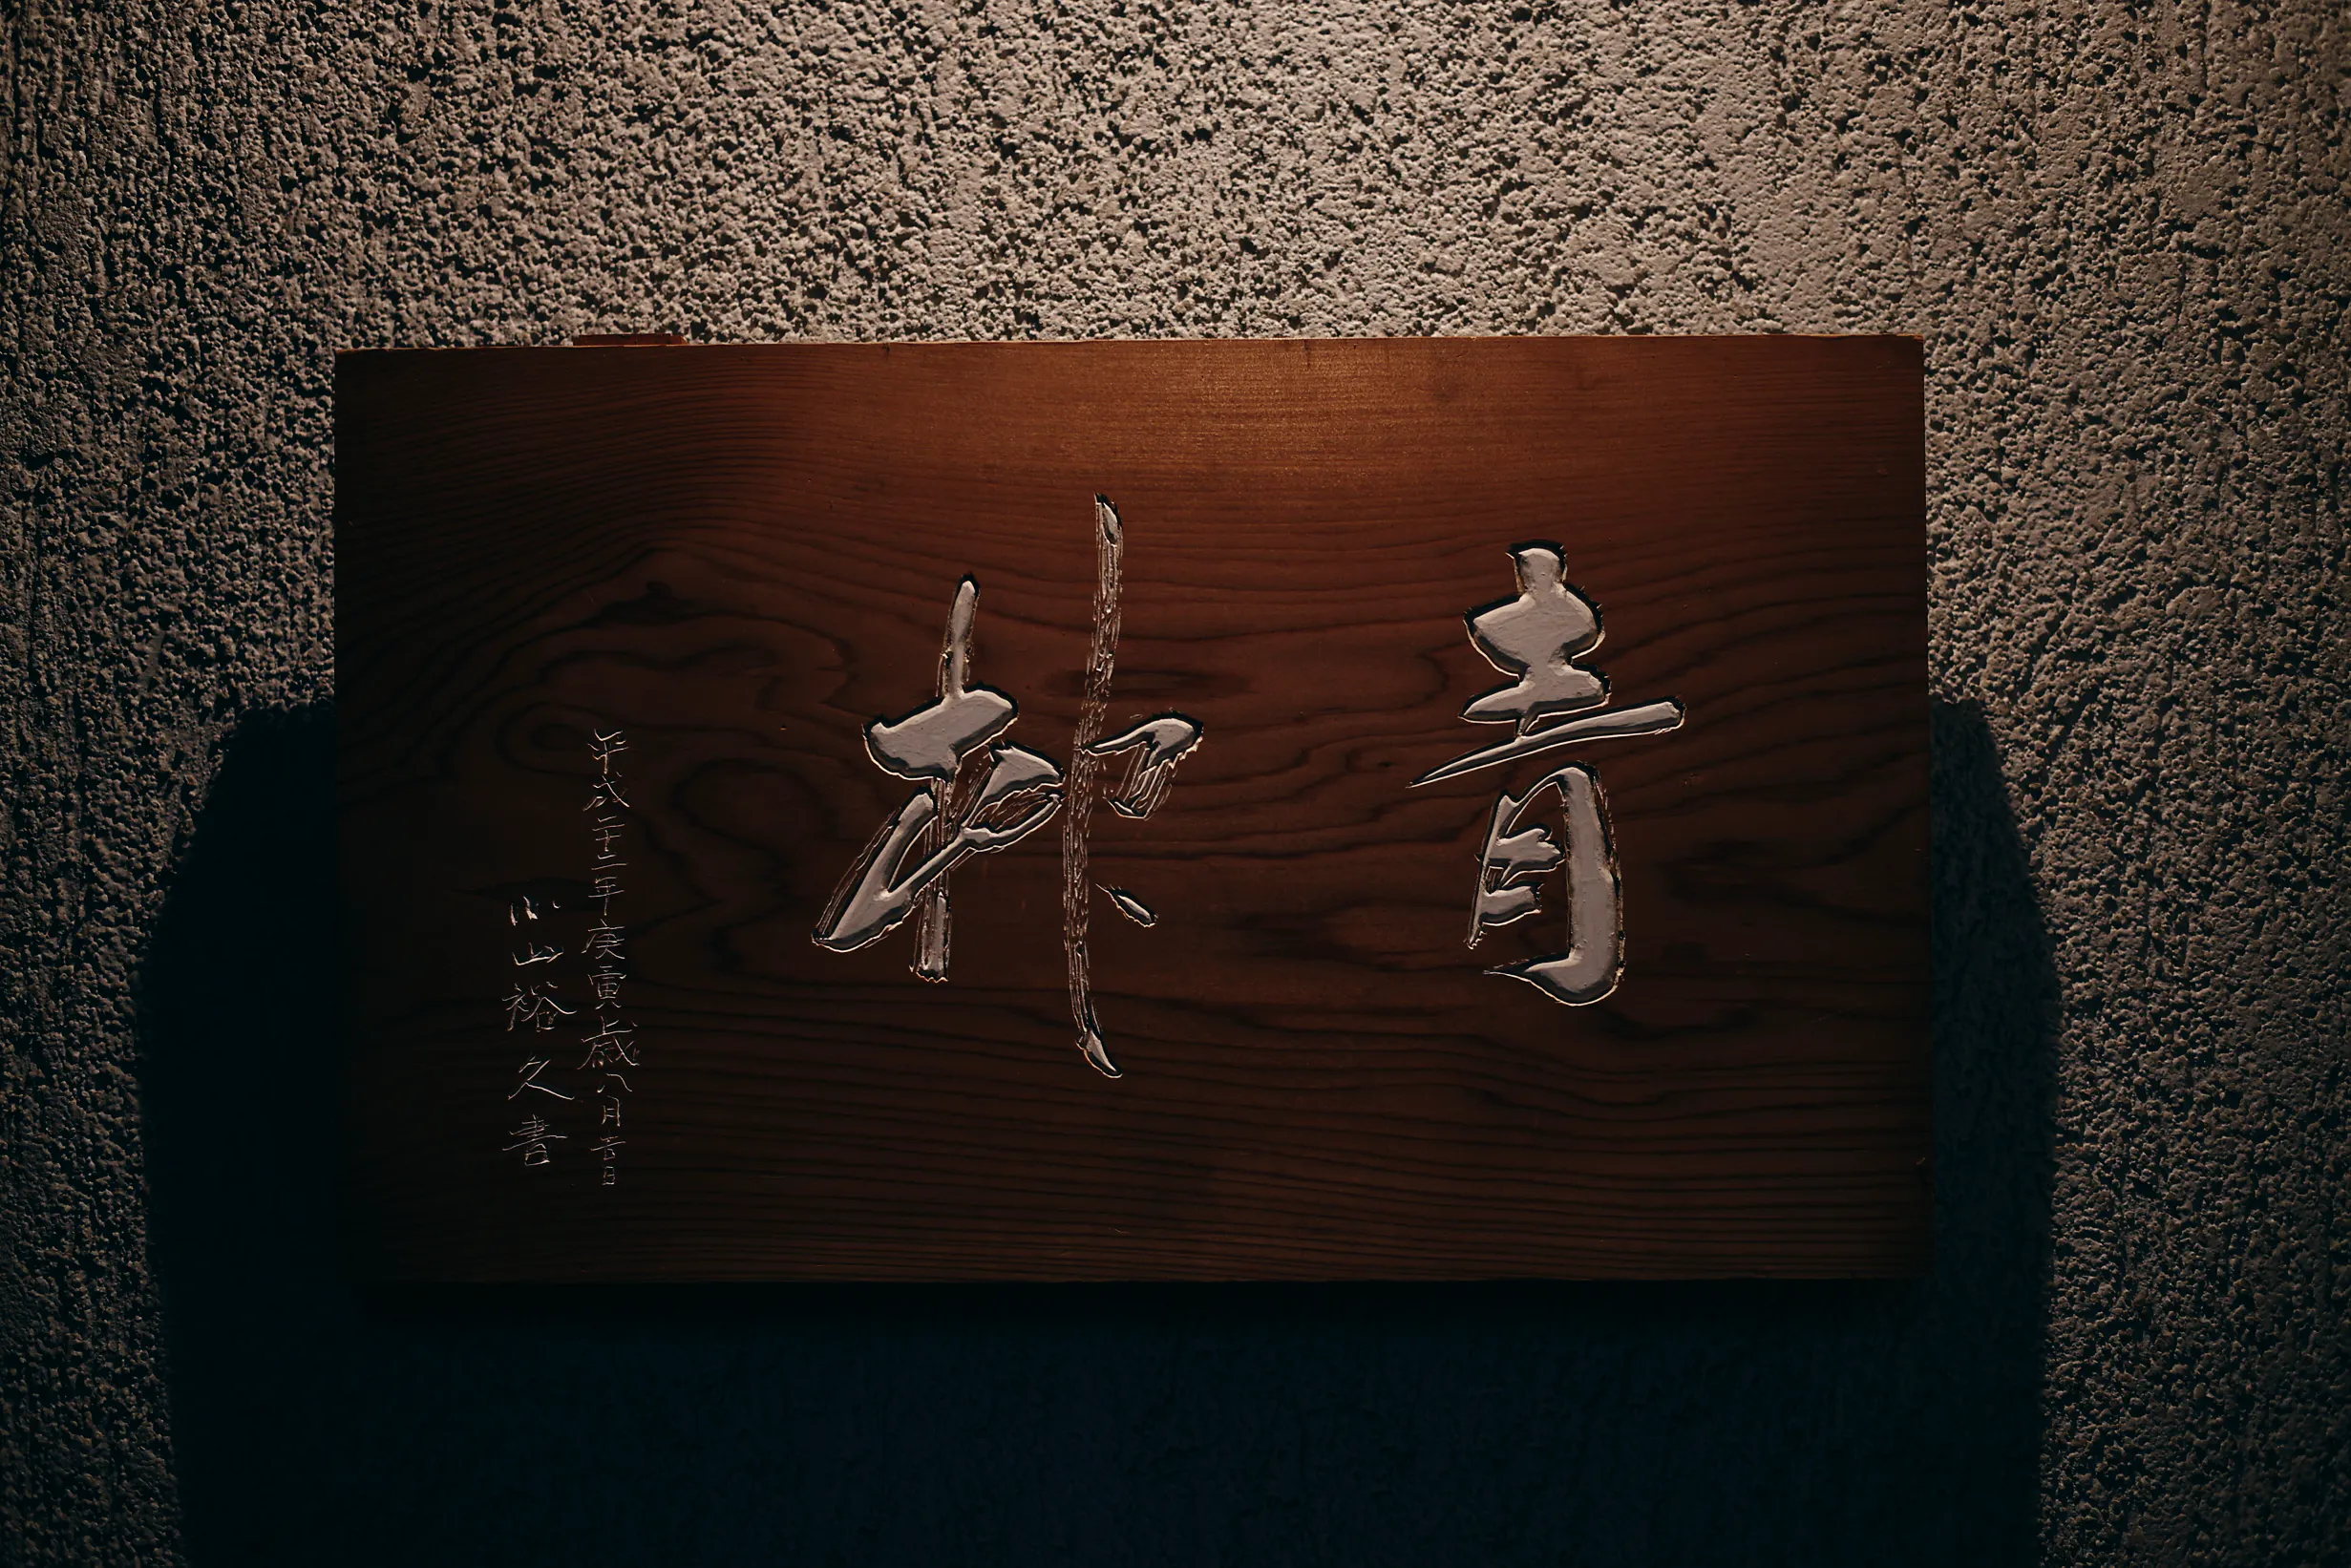 青柳
平成二十二年庚寅歳八月吉日
小山裕久書